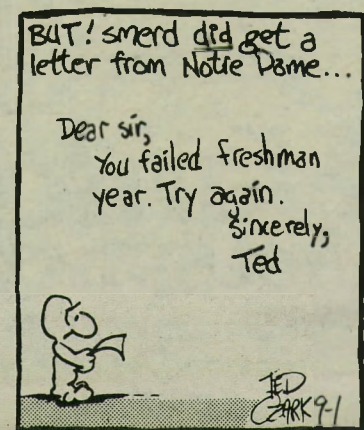 BUT! smerd did get a
letter from Notre Dame...
Dear sir,
You failed freshman
year. Try again.
Sincerely,
Ted
TED
CZARK 9-1